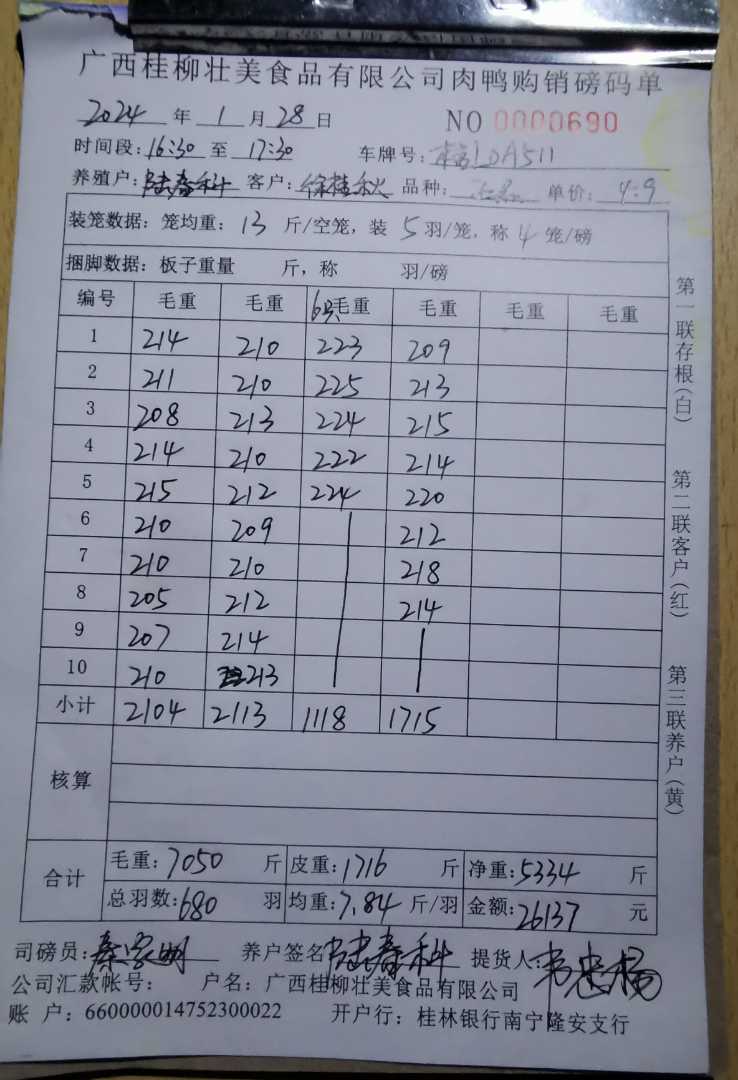 广西桂柳壮美食品有限公司肉鸭购销磅码单
2024 年 1 月 28 日 NO 0000690
时间段: 16:30 至 17:30 车牌号: DA511
养殖户: 陆春科 客户: 徐桂秋 品种: 单价: 4.9
装笼数据: 笼均重: 13 斤/空笼, 装 5 羽/笼, 称 4 笼/磅
捆脚数据: 板子重量 斤, 称 羽/磅
编号 毛重 毛重 6只毛重 毛重 毛重 毛重
1 214 210 223 209
2 211 210 225 213
3 208 213 224 215
4 214 210 222 214
5 215 212 224 220
6 210 209 212
7 210 210 218
8 205 212 214
9 207 214
10 210 213
小计 2104 2113 1118 1715
核算
合计 毛重: 7050 斤 皮重: 1716 斤 净重: 5334 斤
总羽数: 680 羽 均重: 7.84 斤/羽 金额: 26137 元
司磅员: 秦家明 养户签名 陆春科 提货人: 韦忠杨
公司汇款帐号: 户名: 广西桂柳壮美食品有限公司
账 户: 660000014752300022 开户行: 桂林银行南宁隆安支行
第一联存根(白)
第二联客户(红)
第三联养户(黄)